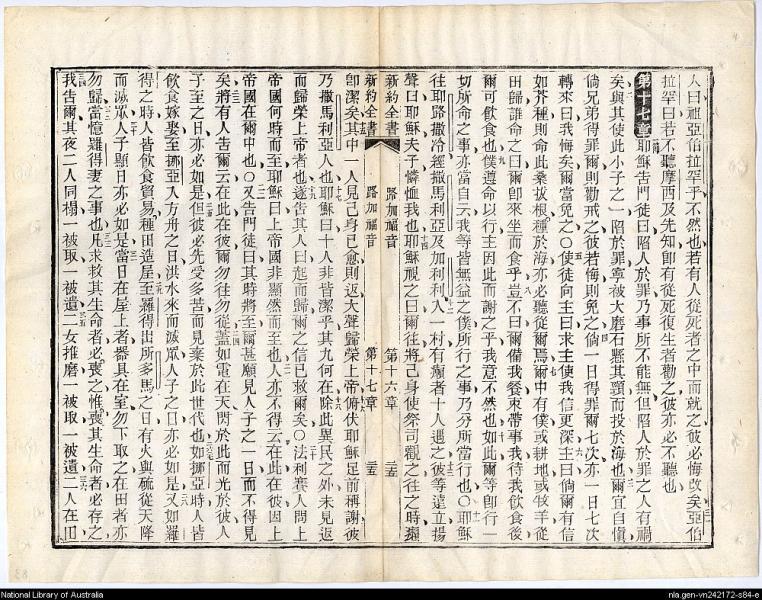 人曰祖亞伯拉罕乎不然也若有人從死者之中而就之彼必悔改矣亞伯
拉罕曰若不聽摩西及先知卽有從死復生者勸之彼亦必不聽也
第十七章耶穌告門徒曰陷人於罪乃事所不能無但陷人於罪之人有禍
矣與其使此小子之一陷於罪寧被大磨石懸其頸而投於海也爾宜自愼
倘兄弟得罪爾則勸戒之彼若悔則免之倘一日得罪爾七次亦一日七次
轉來曰我悔矣爾當免之○使徒向主曰求主使我信更深主曰倘爾有信
如芥種則命此桑拔根種於海亦必聽從爾焉爾中有僕或耕地或牧羊從
田歸誰命之曰爾卽來坐而食乎豈不曰爾備我餐束帶事我待我飲食後
爾可飲食也僕遵命以行主因此而謝之乎我意不然也如此爾等卽行一
切所命之事亦當自云我等皆無益之僕所行之事乃分所當行也○耶穌
往耶路撒冷經撒馬利亞及加利利入一村有癩者十人遇之彼等遠立揚
聲曰耶穌夫子憐恤我也耶穌視之曰爾往將己身使祭司觀之往之時癩
新約全書 路加福音 第十六章 三五
新約全書 路加福音 第十七章 三五
卽潔矣其中一人見己身已愈則返大聲歸榮上帝俯伏耶穌足前稱謝彼
乃撒馬利亞人也耶穌曰十人非皆潔乎其九何在除此異民之外未見返
而歸榮上帝者也遂告其人曰起而歸爾之信已救爾矣○法利賽人問上
帝國何時而至耶穌曰上帝國非顯然而至也人亦不得云在此在彼因上
帝國在爾中也○又告門徒曰其時將至爾甚願見人子之一日而不得見
矣將有人告爾云在此在彼爾勿往勿從蓋如電在天閃於此而光於彼人
子至之日亦必如是但彼必先受多苦而見棄於此世代也如挪亞時人皆
飮食嫁娶至挪亞入方舟之日洪水來而滅眾人子之日亦必如是又如羅
得之時人皆飮食貿易種田造屋至羅得出所多馬之日有火與硫從天降
而滅眾人子顯日亦必如是當日在屋上者器具在室勿下取之在田者亦
勿歸當憶羅得妻之事也凡求救其生命者必喪之惟喪其生命者必存之
我告爾其夜二人同榻一被取一被遺二女推磨一被取一被遺二人在田
National Library of Australia
nla.gen-vn242172-s84-e